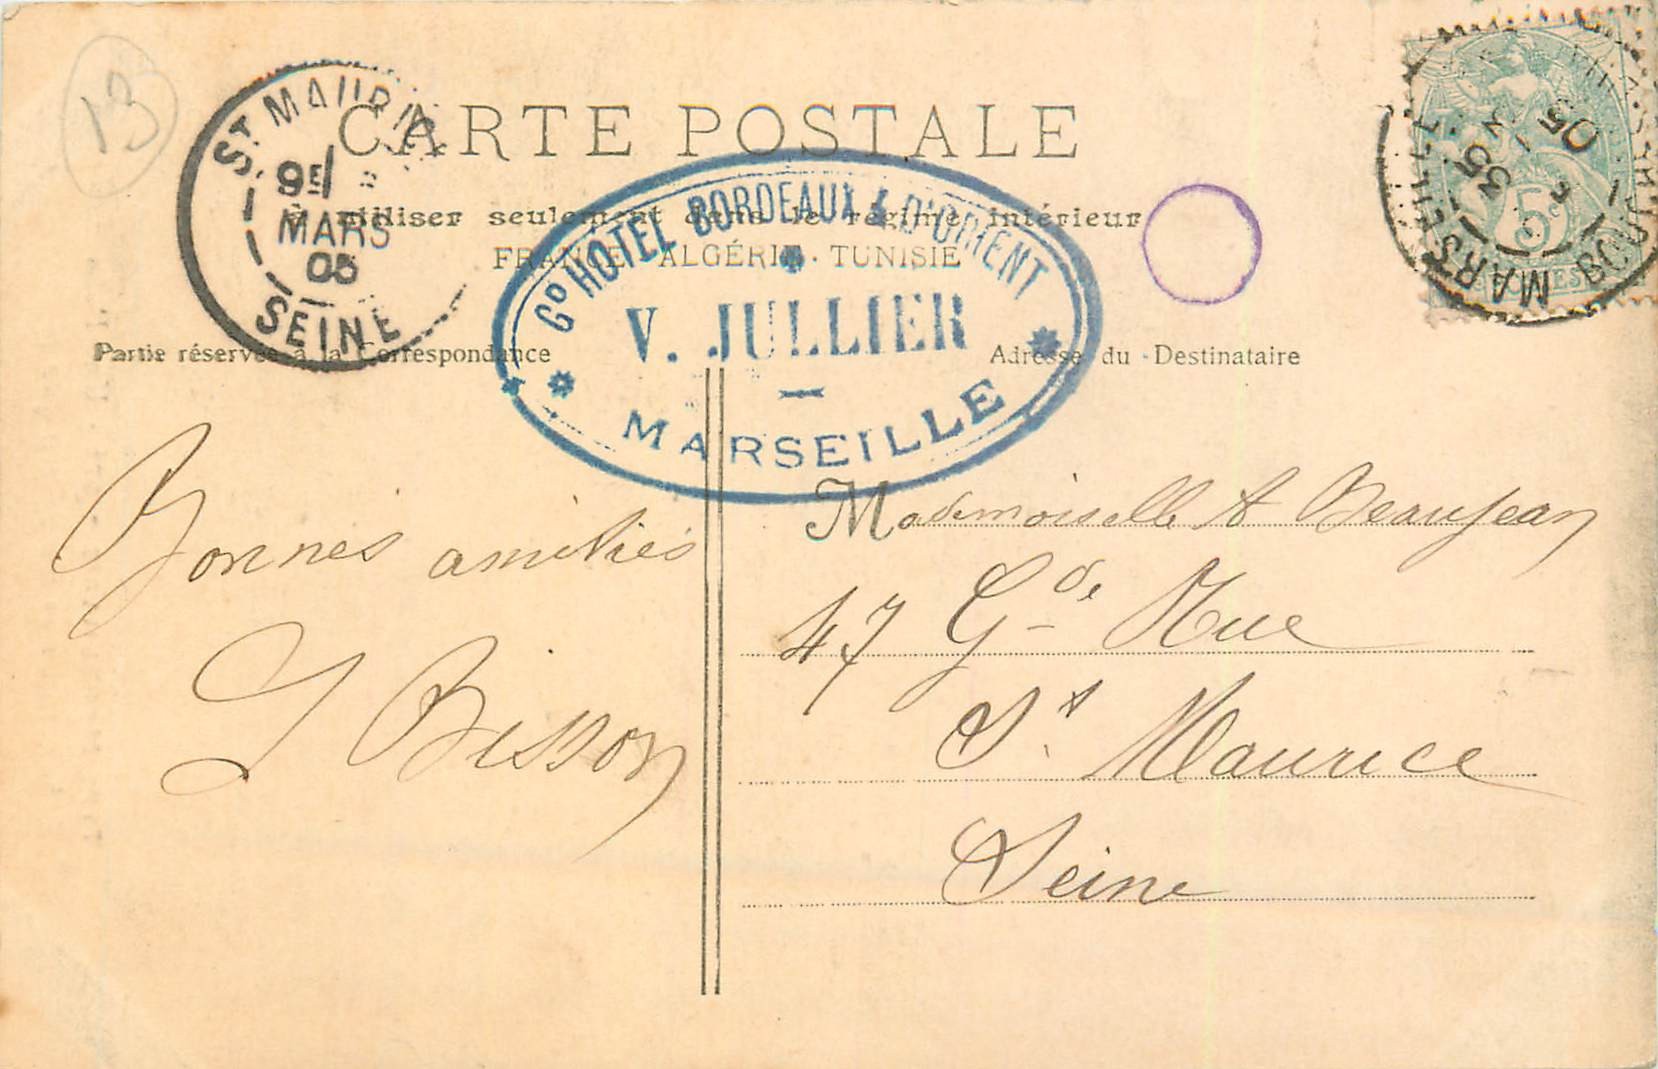 13
ST MAURICE
9E
MARS
05
SEINE
CARTE POSTALE
à utiliser seulement dans le régime intérieur
FRANCE - ALGÉRIE - TUNISIE
Partie réservée à la Correspondance
Adresse du Destinataire
Gd HOTEL BORDEAUX & D'ORIENT
V. JULLIER
MARSEILLE
MARSEILLE
35
05
5c
BOUCH
Bonnes amitiés
L Bisson
Mademoiselle A Beaujean
47 Gde Rue
St Maurice
Seine